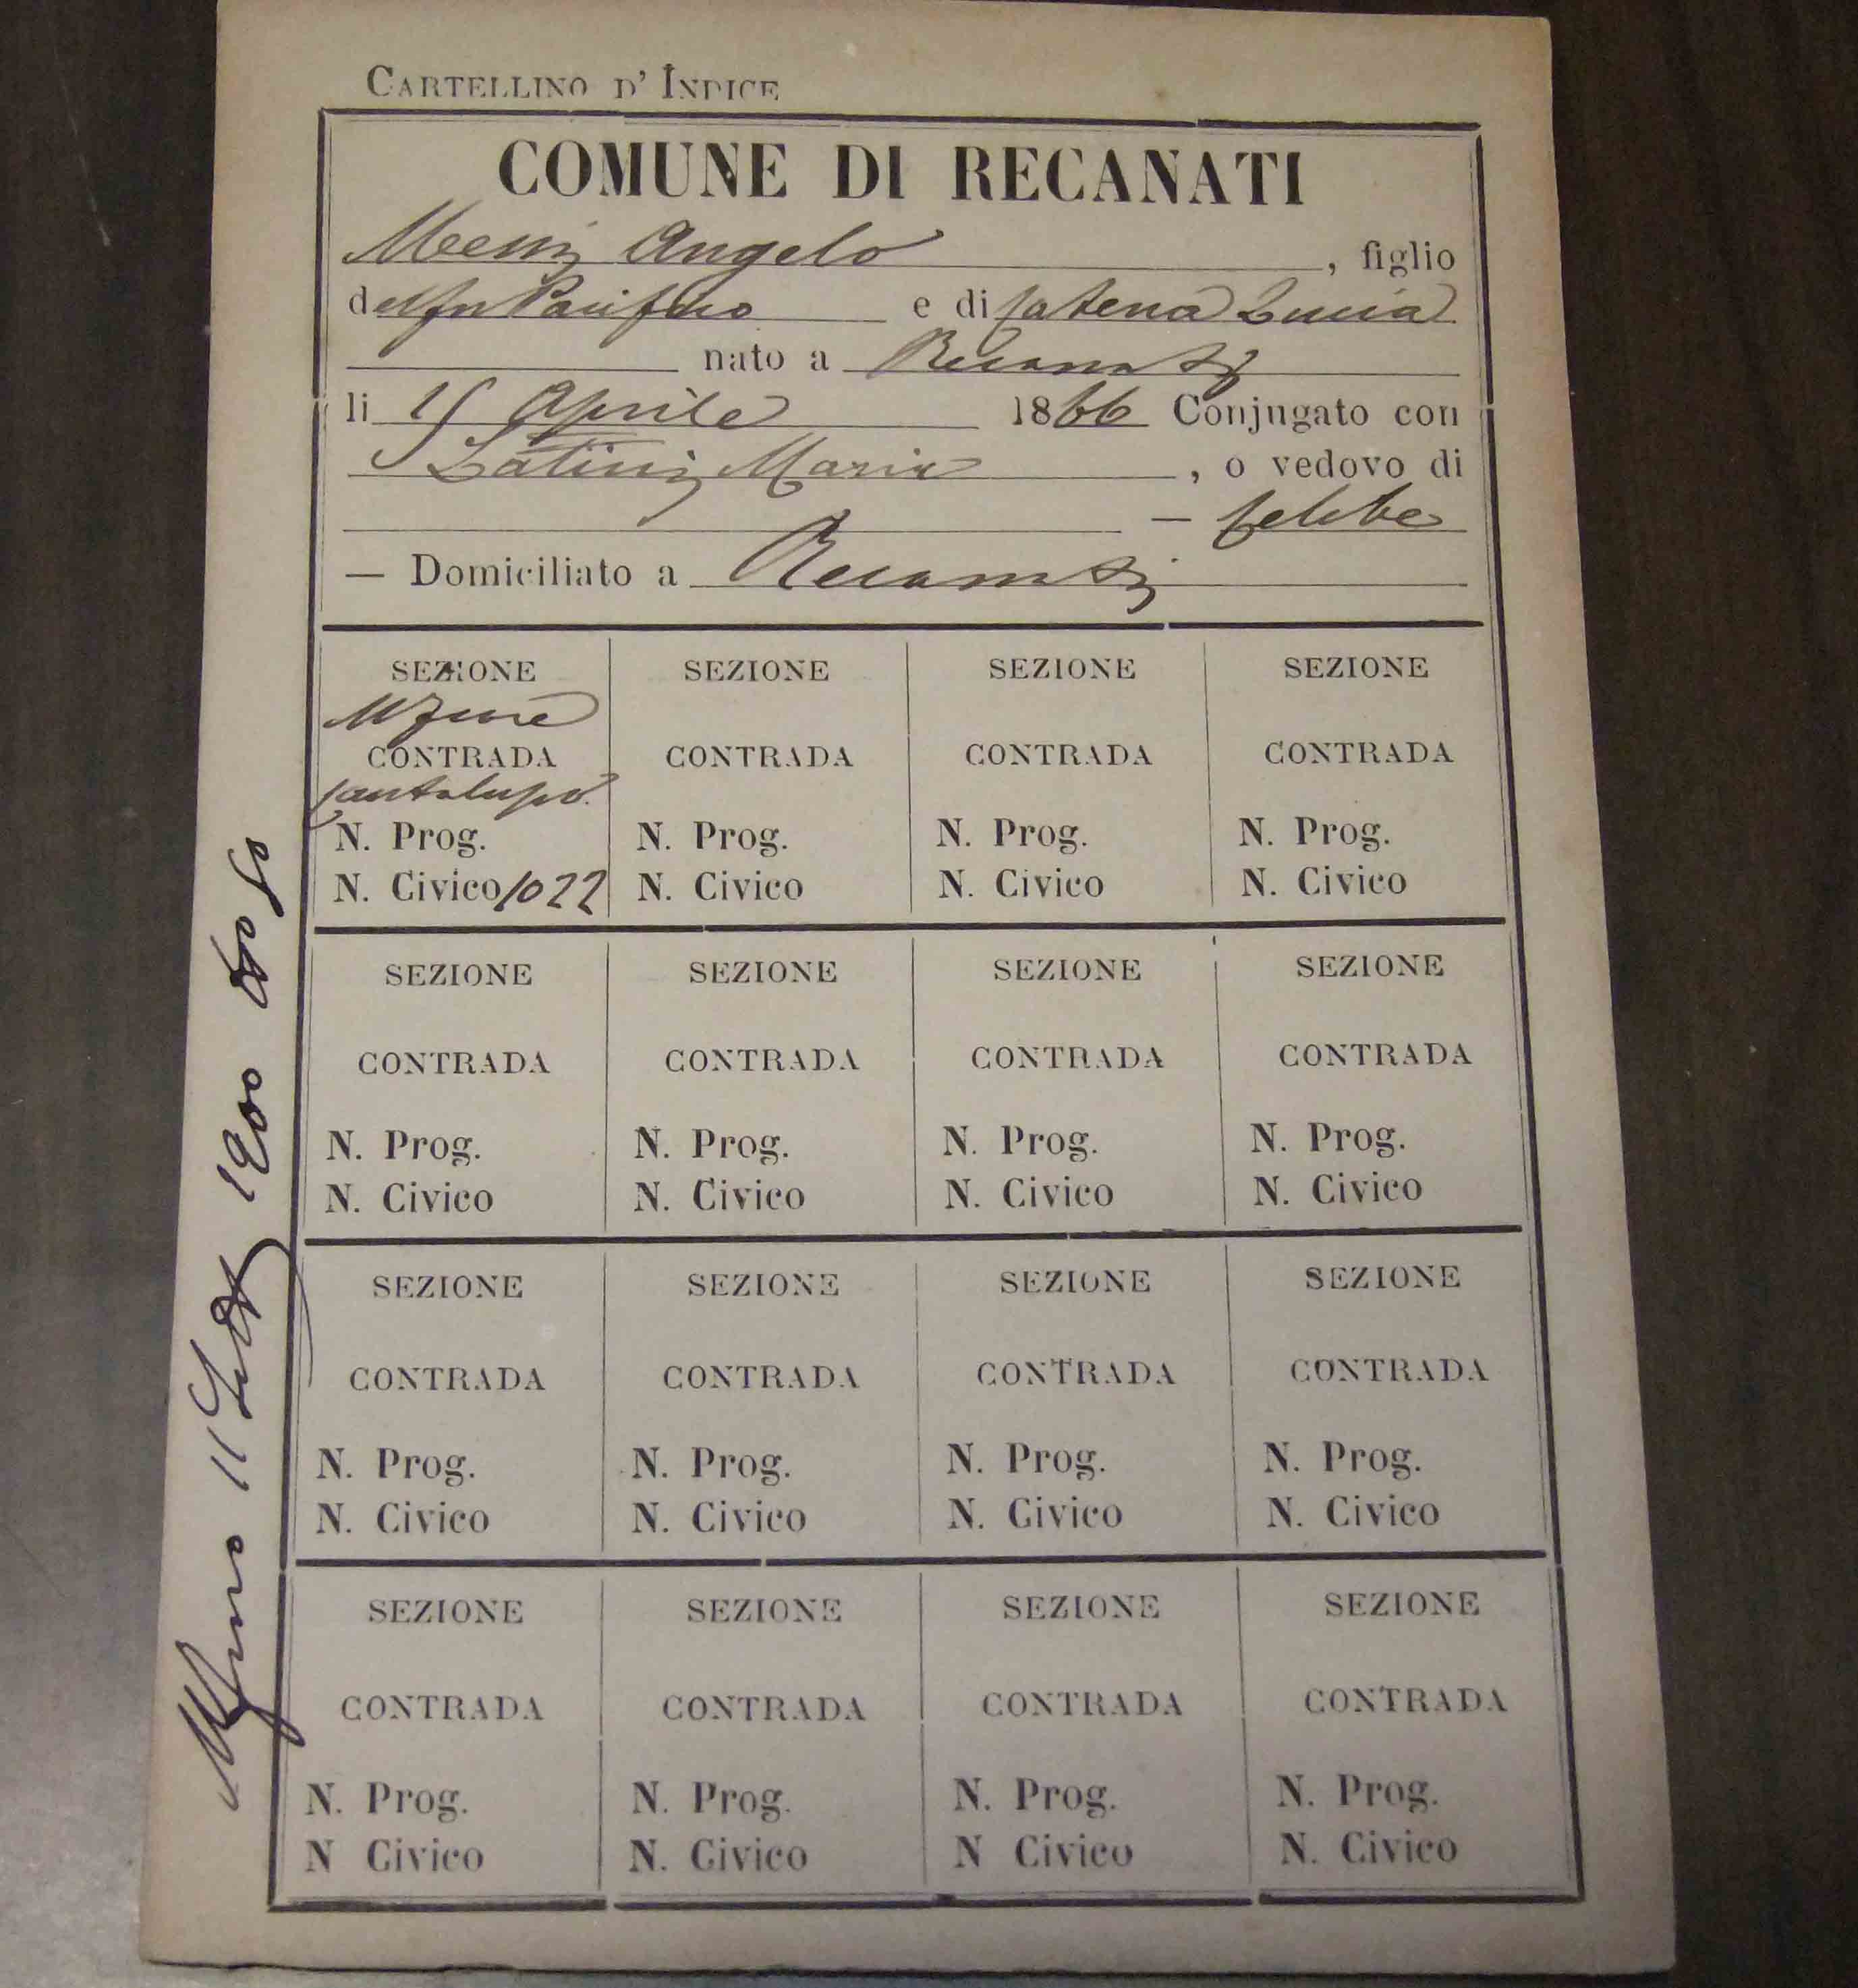 CARTELLINO D' INDICE
COMUNE DI RECANATI
Messi Angelo, figlio
del fu Pacifico e di Catena Lucia
nato a Recanati
li 15 Aprile 1866 Conjugato con
Latini Maria, o vedovo di
— celibe
— Domiciliato a Recanati
SEZIONE SEZIONE SEZIONE SEZIONE
CONTRADA CONTRADA CONTRADA CONTRADA
Cantalupo
N. Prog. N. Prog. N. Prog. N. Prog.
N. Civico 1022 N. Civico N. Civico N. Civico
SEZIONE SEZIONE SEZIONE SEZIONE
CONTRADA CONTRADA CONTRADA CONTRADA
N. Prog. N. Prog. N. Prog. N. Prog.
N. Civico N. Civico N. Civico N. Civico
SEZIONE SEZIONE SEZIONE SEZIONE
CONTRADA CONTRADA CONTRADA CONTRADA
N. Prog. N. Prog. N. Prog. N. Prog.
N. Civico N. Civico N. Civico N. Civico
SEZIONE SEZIONE SEZIONE SEZIONE
CONTRADA CONTRADA CONTRADA CONTRADA
N. Prog. N. Prog. N. Prog. N. Prog.
N Civico N. Civico N Civico N. Civico
11 1900